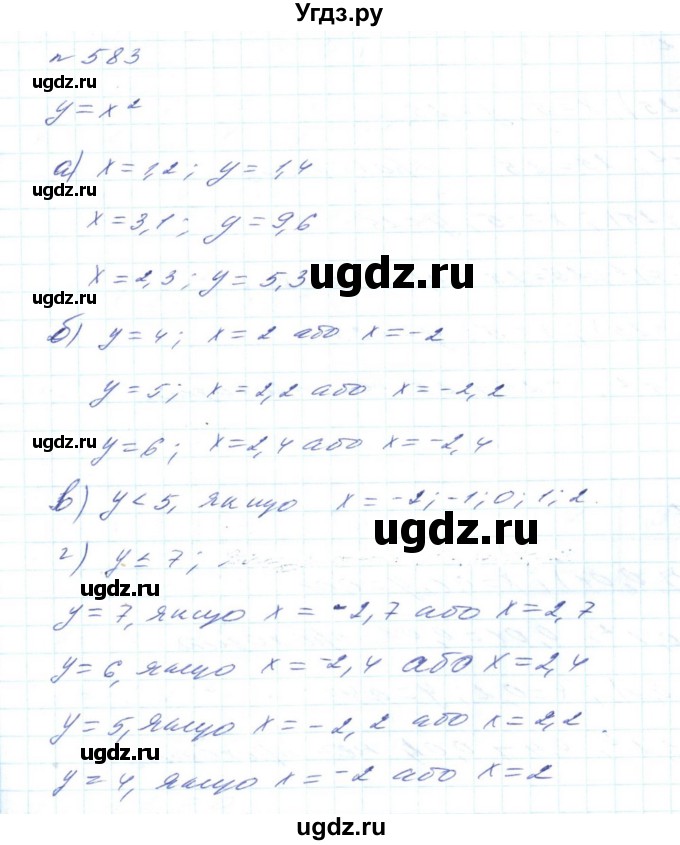 Угдз.ру
№ 583
ugdz.ru
y = x²
а) x = 1,2; y = 1,4
ugdz.ru
x = 3,1; y = 9,6
x = 2,3; y = 5,3
ugdz.ru
ugdz.ru
б) y = 4; x = 2 або x = -2
y = 5; x = 2,2 або x = -2,2
ugdz.ru
y = 6; x = 2,4 або x = -2,4
в) y < 5, якщо x = -2; -1; 0; 1; 2.
ugdz.ru
г) y ≤ 7;
ugdz.ru
y = 7, якщо x = -2,7 або x = 2,7
y = 6, якщо x = -2,4 або x = 2,4
y = 5, якщо x = -2,2 або x = 2,2.
ugdz.ru
y = 4, якщо x = -2 або x = 2
ugdz.ru